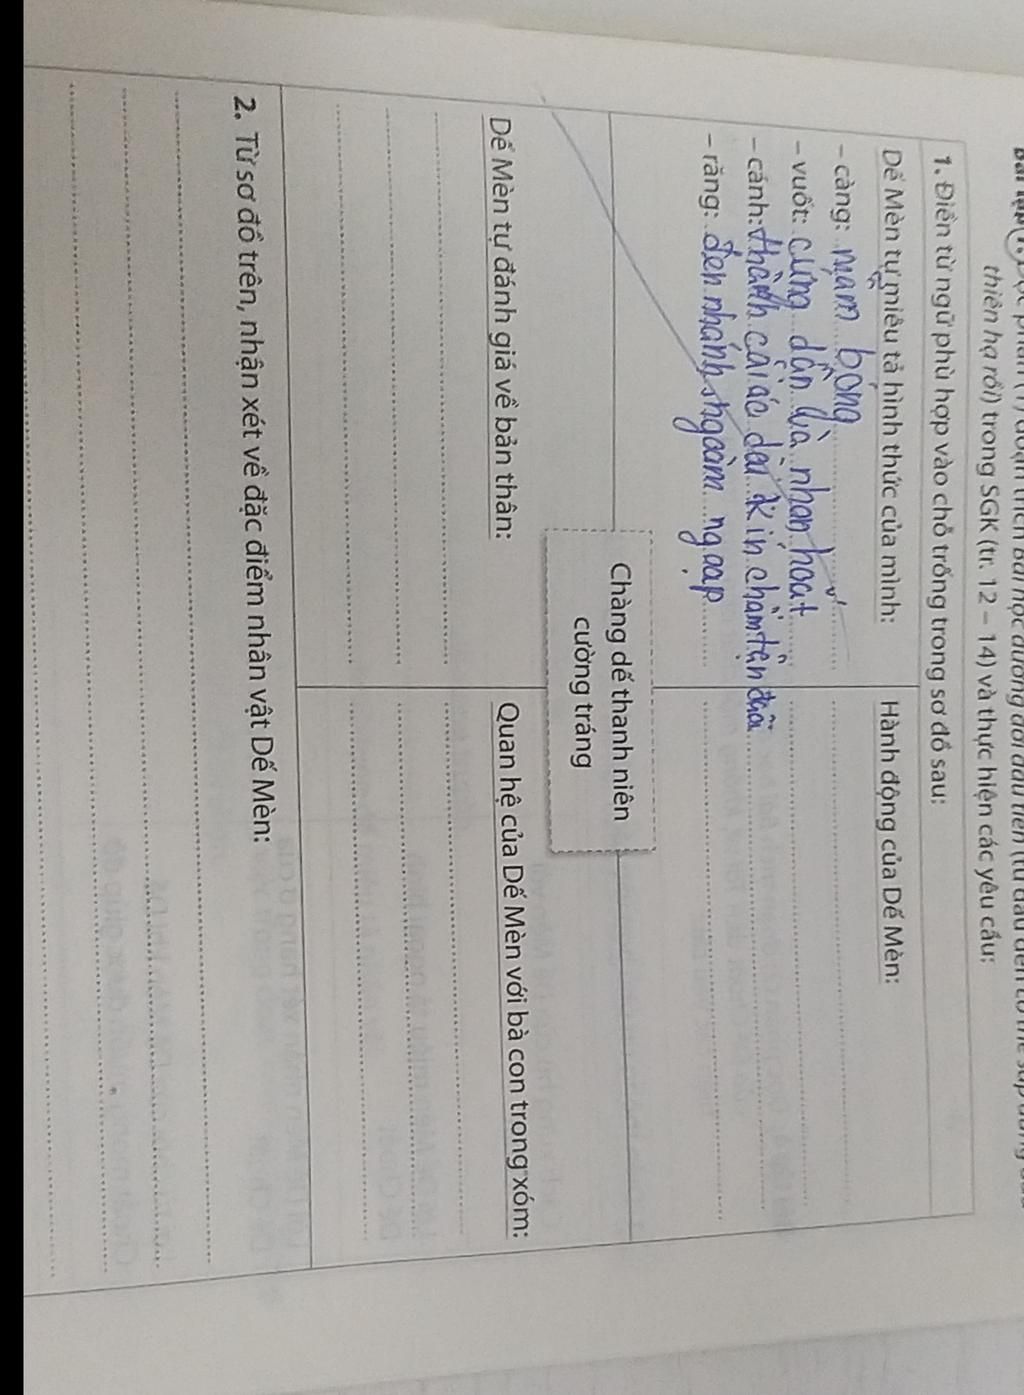 thiên hạ rồi) trong SGK (tr. 12 – 14) và thực hiện các yêu cầu:
1. Điền từ ngữ phù hợp vào chỗ trống trong sơ đồ sau:
Dế Mèn tự miêu tả hình thức của mình:
– càng: mẫm bóng
– vuốt: cứng dần và nhọn hoắt
– cánh: thành cái áo dài kín chấm tận đuôi
– răng: đen nhánh, ngoàm ngoạp
Hành động của Dế Mèn:
Chàng dế thanh niên
cường tráng
Dế Mèn tự đánh giá về bản thân:
Quan hệ của Dế Mèn với bà con trong xóm:
2. Từ sơ đồ trên, nhận xét về đặc điểm nhân vật Dế Mèn: